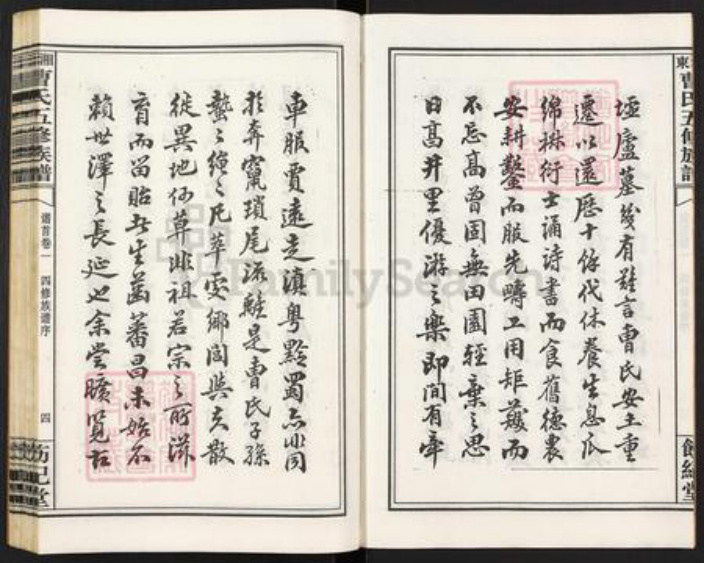 東曹氏五修族譜
墟廬墓幾有難言曹氏安土重
遷以還歷十餘代休養生息瓜
綿椒衍士誦詩書而食舊德農
安耕鑿而服先疇工用矩蒦而
不忘高曾固無田園輕棄之思
日高井里優游之樂即間有牽
車服賈遠走滇粵黔蜀亦非同
於奔竄瑣尾流離是曹氏子孫
蟄蟄繩繩凡華雯鄉閭與夫散
徙異地何莫非祖若宗之所滋
育而留貽者生齒蕃昌未始不
賴世澤之長延也余嘗曠覽古
湘
曹氏五修族譜
谱首卷一 四修族谱序
四
FamilySearch